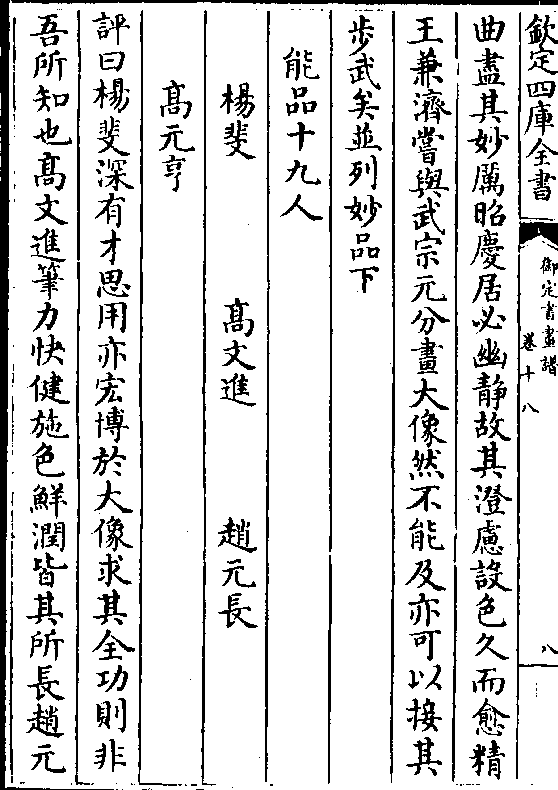 欽定四庫全書
御定書畫譜
卷十八
八
曲盡其妙厲昭慶居必幽靜故其澄慮設色久而愈精
王兼濟嘗與武宗元分畫大像然不能及亦可以接其
步武矣並列妙品下
能品十九人
楊斐　高文進　趙元長
高元亨
評曰楊斐深有才思用亦宏博於大像求其全功則非
吾所知也高文進筆力快健施色鮮潤皆其所長趙元